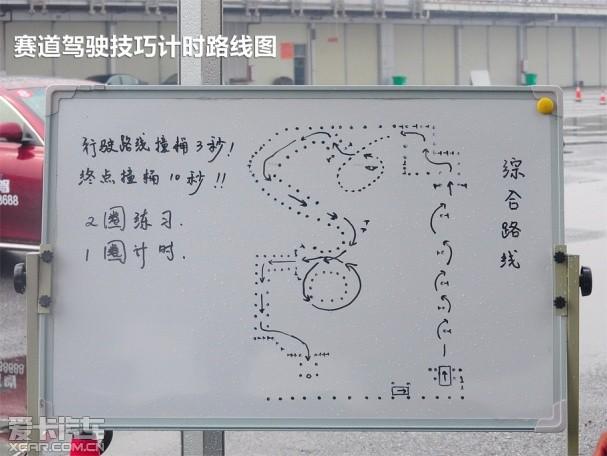 赛道驾驶技巧计时路线图
行驶路线撞桶3秒!
终点撞桶10秒!!
2圈练习.
1圈计时.
综合路线
驾
8688
爱卡汽车
XCAR.COM.CN